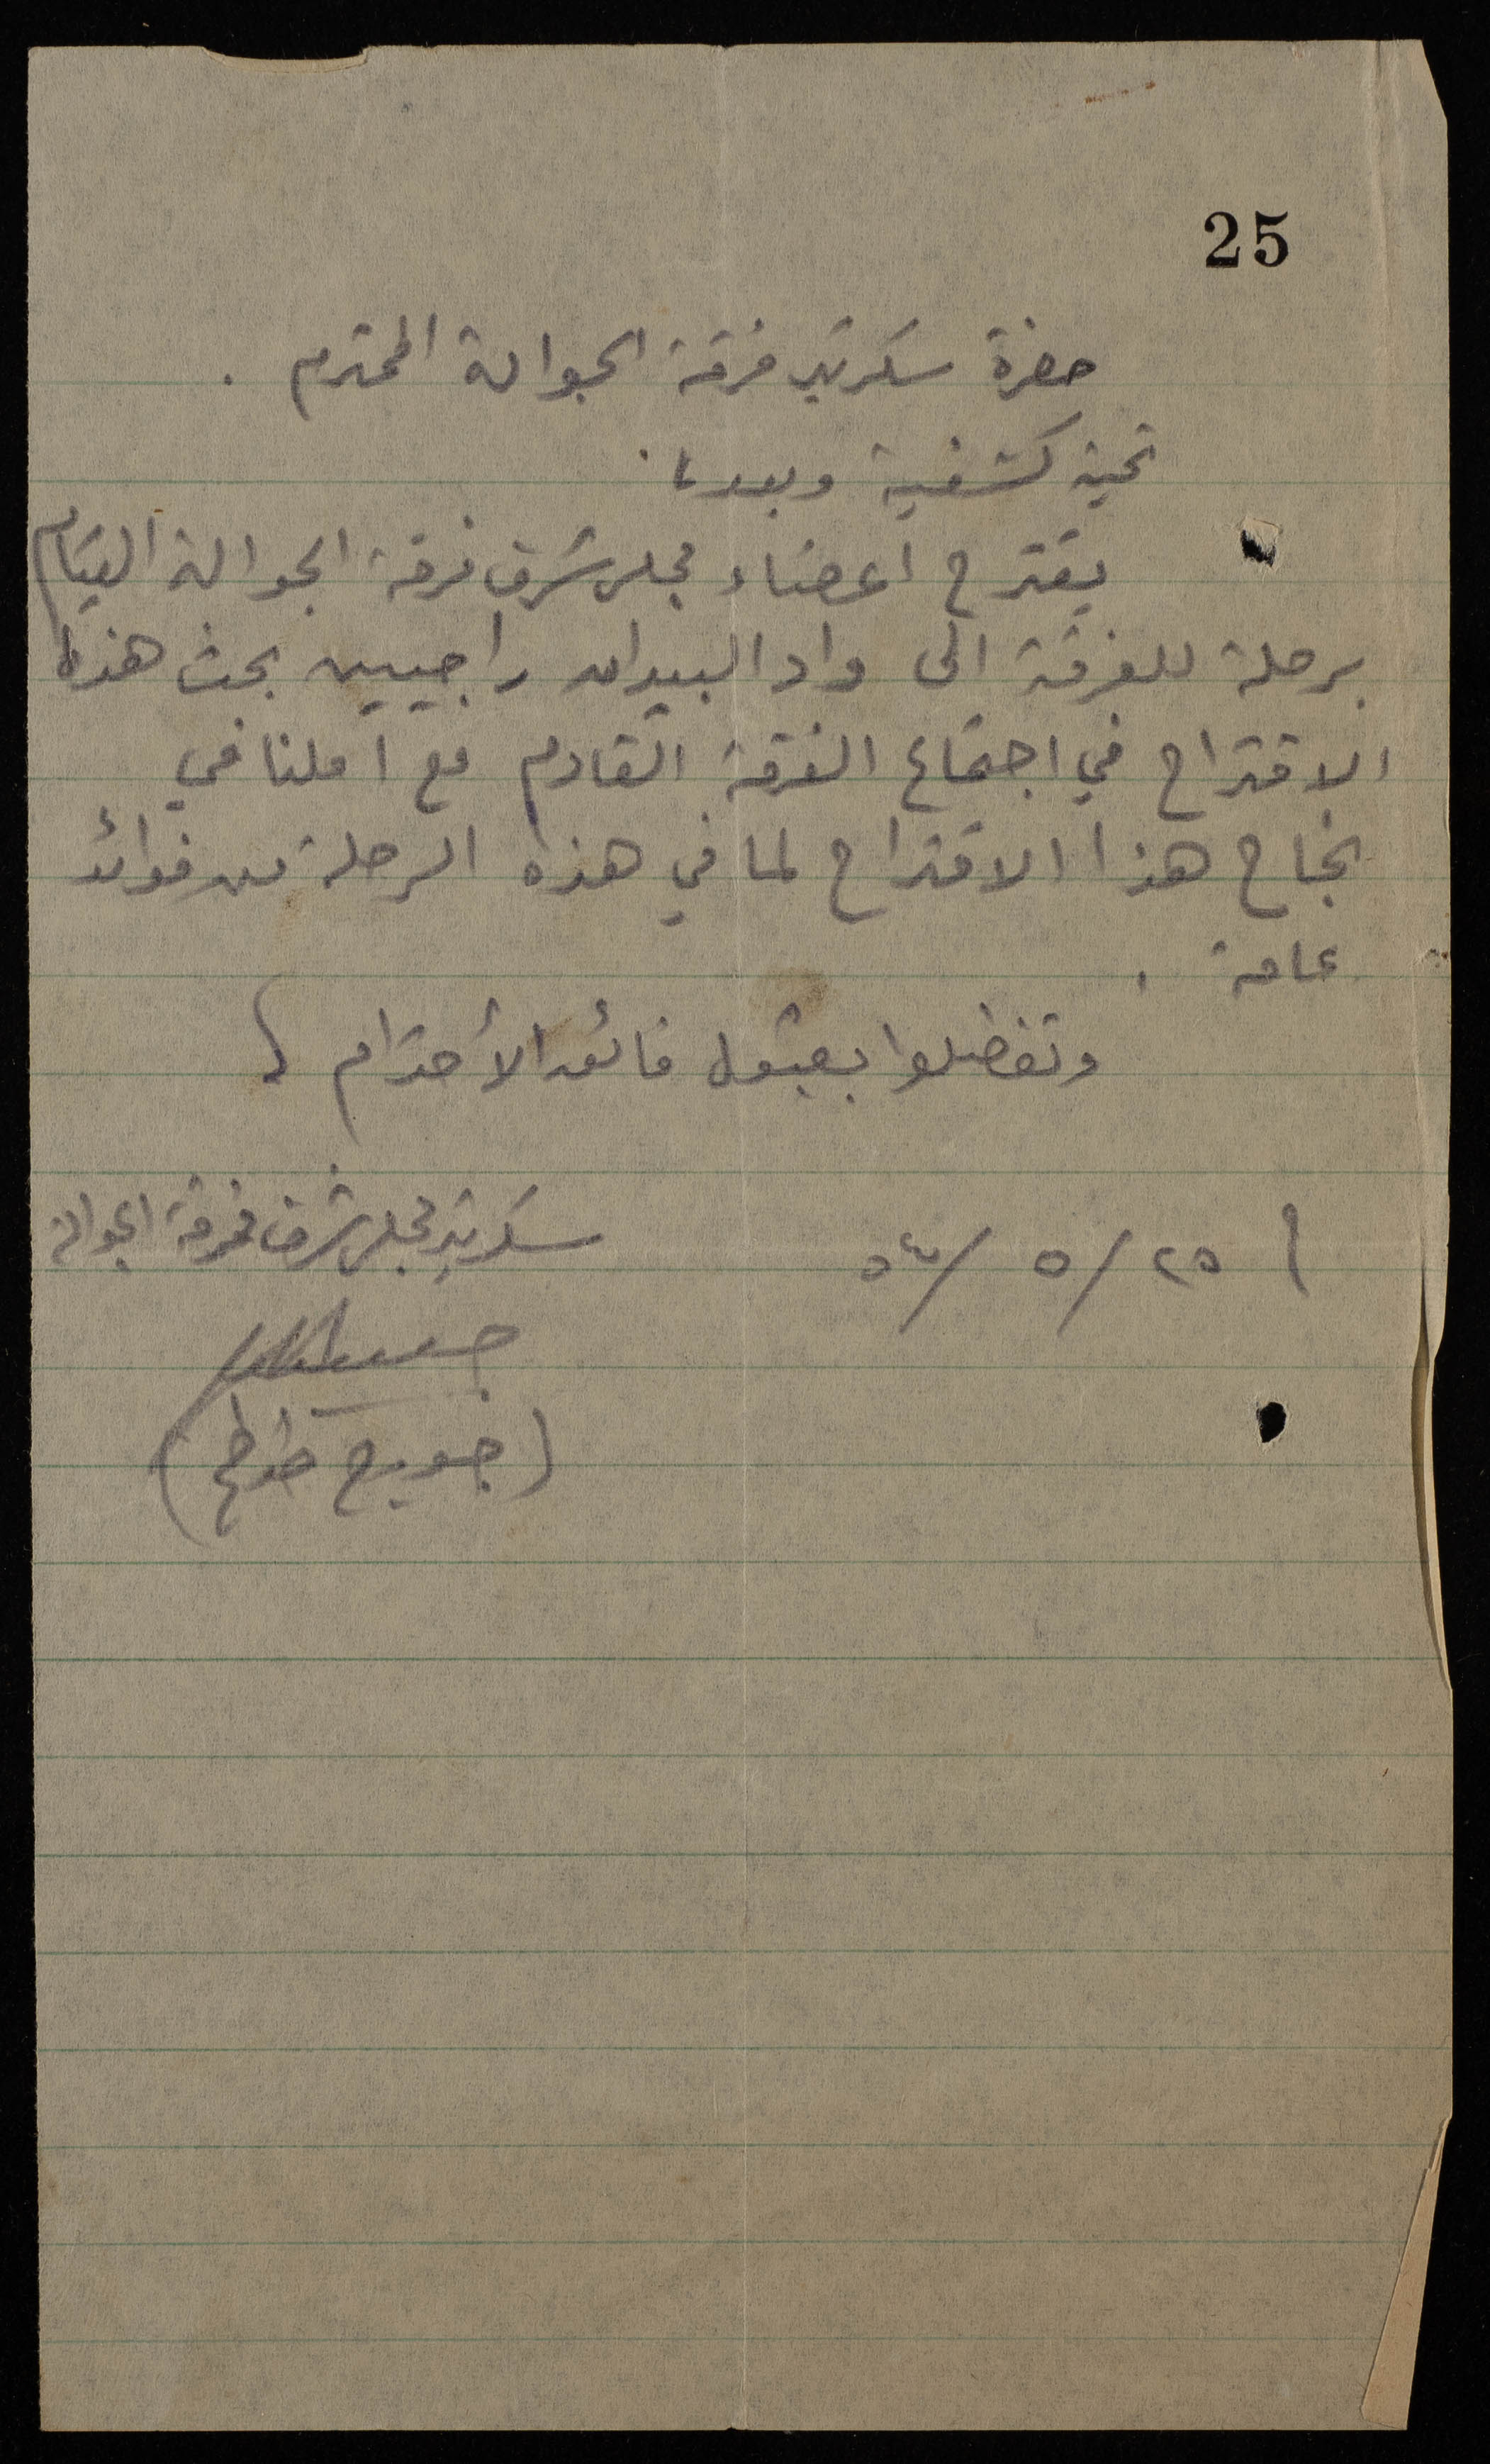 25
حضرة سكرتير فرقة الجوالة المحترم .
تحية كشفية وبعد ،
يقترح اعضاء مجلس شرف فرقة الجوالة القيام
برحلة للفرقة الى واد البيدان راجيين بحث هذا
الاقتراح في اجتماع الفرقة القادم مع املنا في
نجاح هذا الاقتراح لما في هذه الرحلة من فوائد
عامة .
وتفضلوا بقبول فائق الأحترام
٢٥ / ٥ / ٥٤
سكرتير مجلس شرف فرقة الجوالة
(جورج